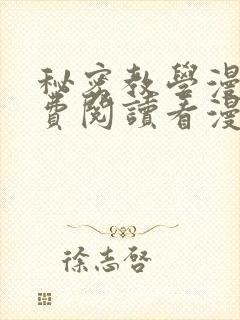 秘密教學漫
費閱讀看漫
徐志啓